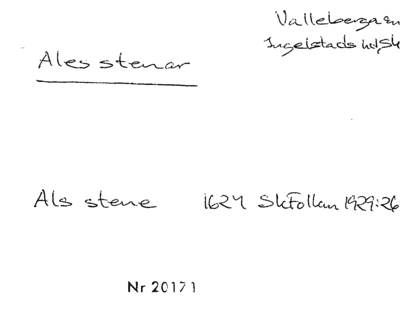 Valleberga sn
Ingelstads hd, Sk
Ales stenar
Als stene 1624 SkFollm 1929:26
Nr 20171